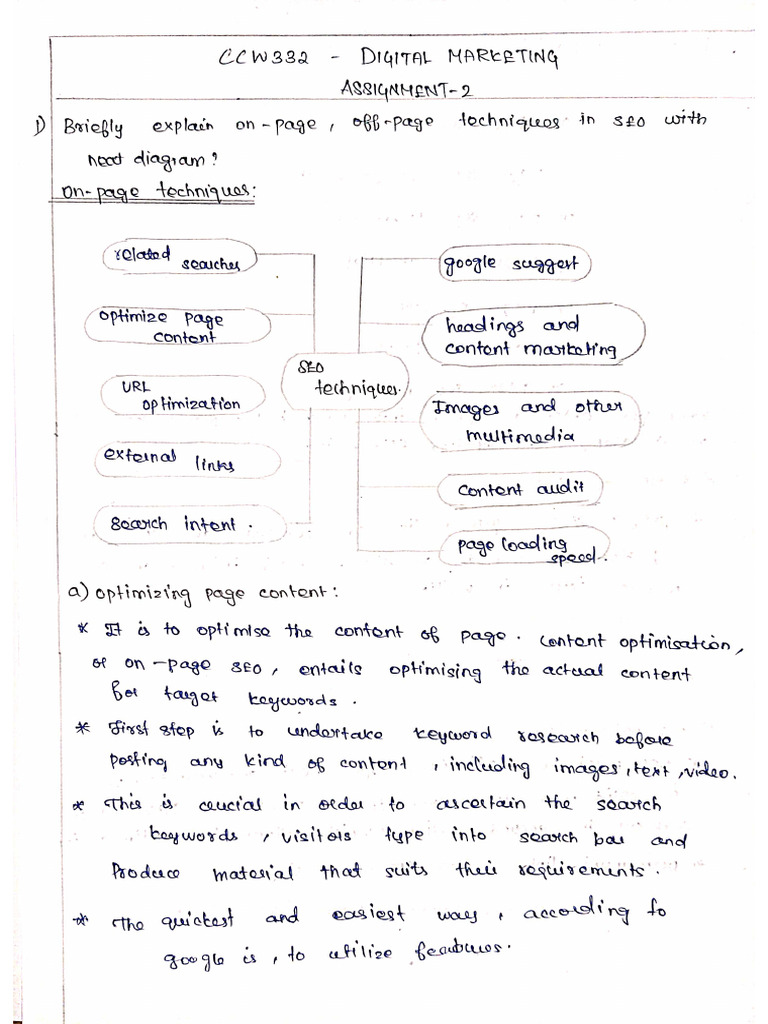 CCW332 - DIGITAL MARKETING
ASSIGNMENT-2
1) Briefly explain on-page, off-page techniques in SEO with
neat diagram?
on-page techniques:
related
searches
optimize page
content
URL
optimization
external
links
search intent.
SEO
techniques.
google suggest
headings and
content marketing
Images and other
multimedia
content audit
page loading
speed.
a) optimizing page content:
* It is to optimise the content of page. content optimisation,
or on-page SEO, entails optimising the actual content
for target keywords.
* First step is to undertake keyword research before
posting any kind of content, including images, text, video.
* This is crucial in order to ascertain the search
keywords, visitors type into search bar and
Produce material that suits their requirements.
* The quickest and easiest way, according to
google is, to utilize features.